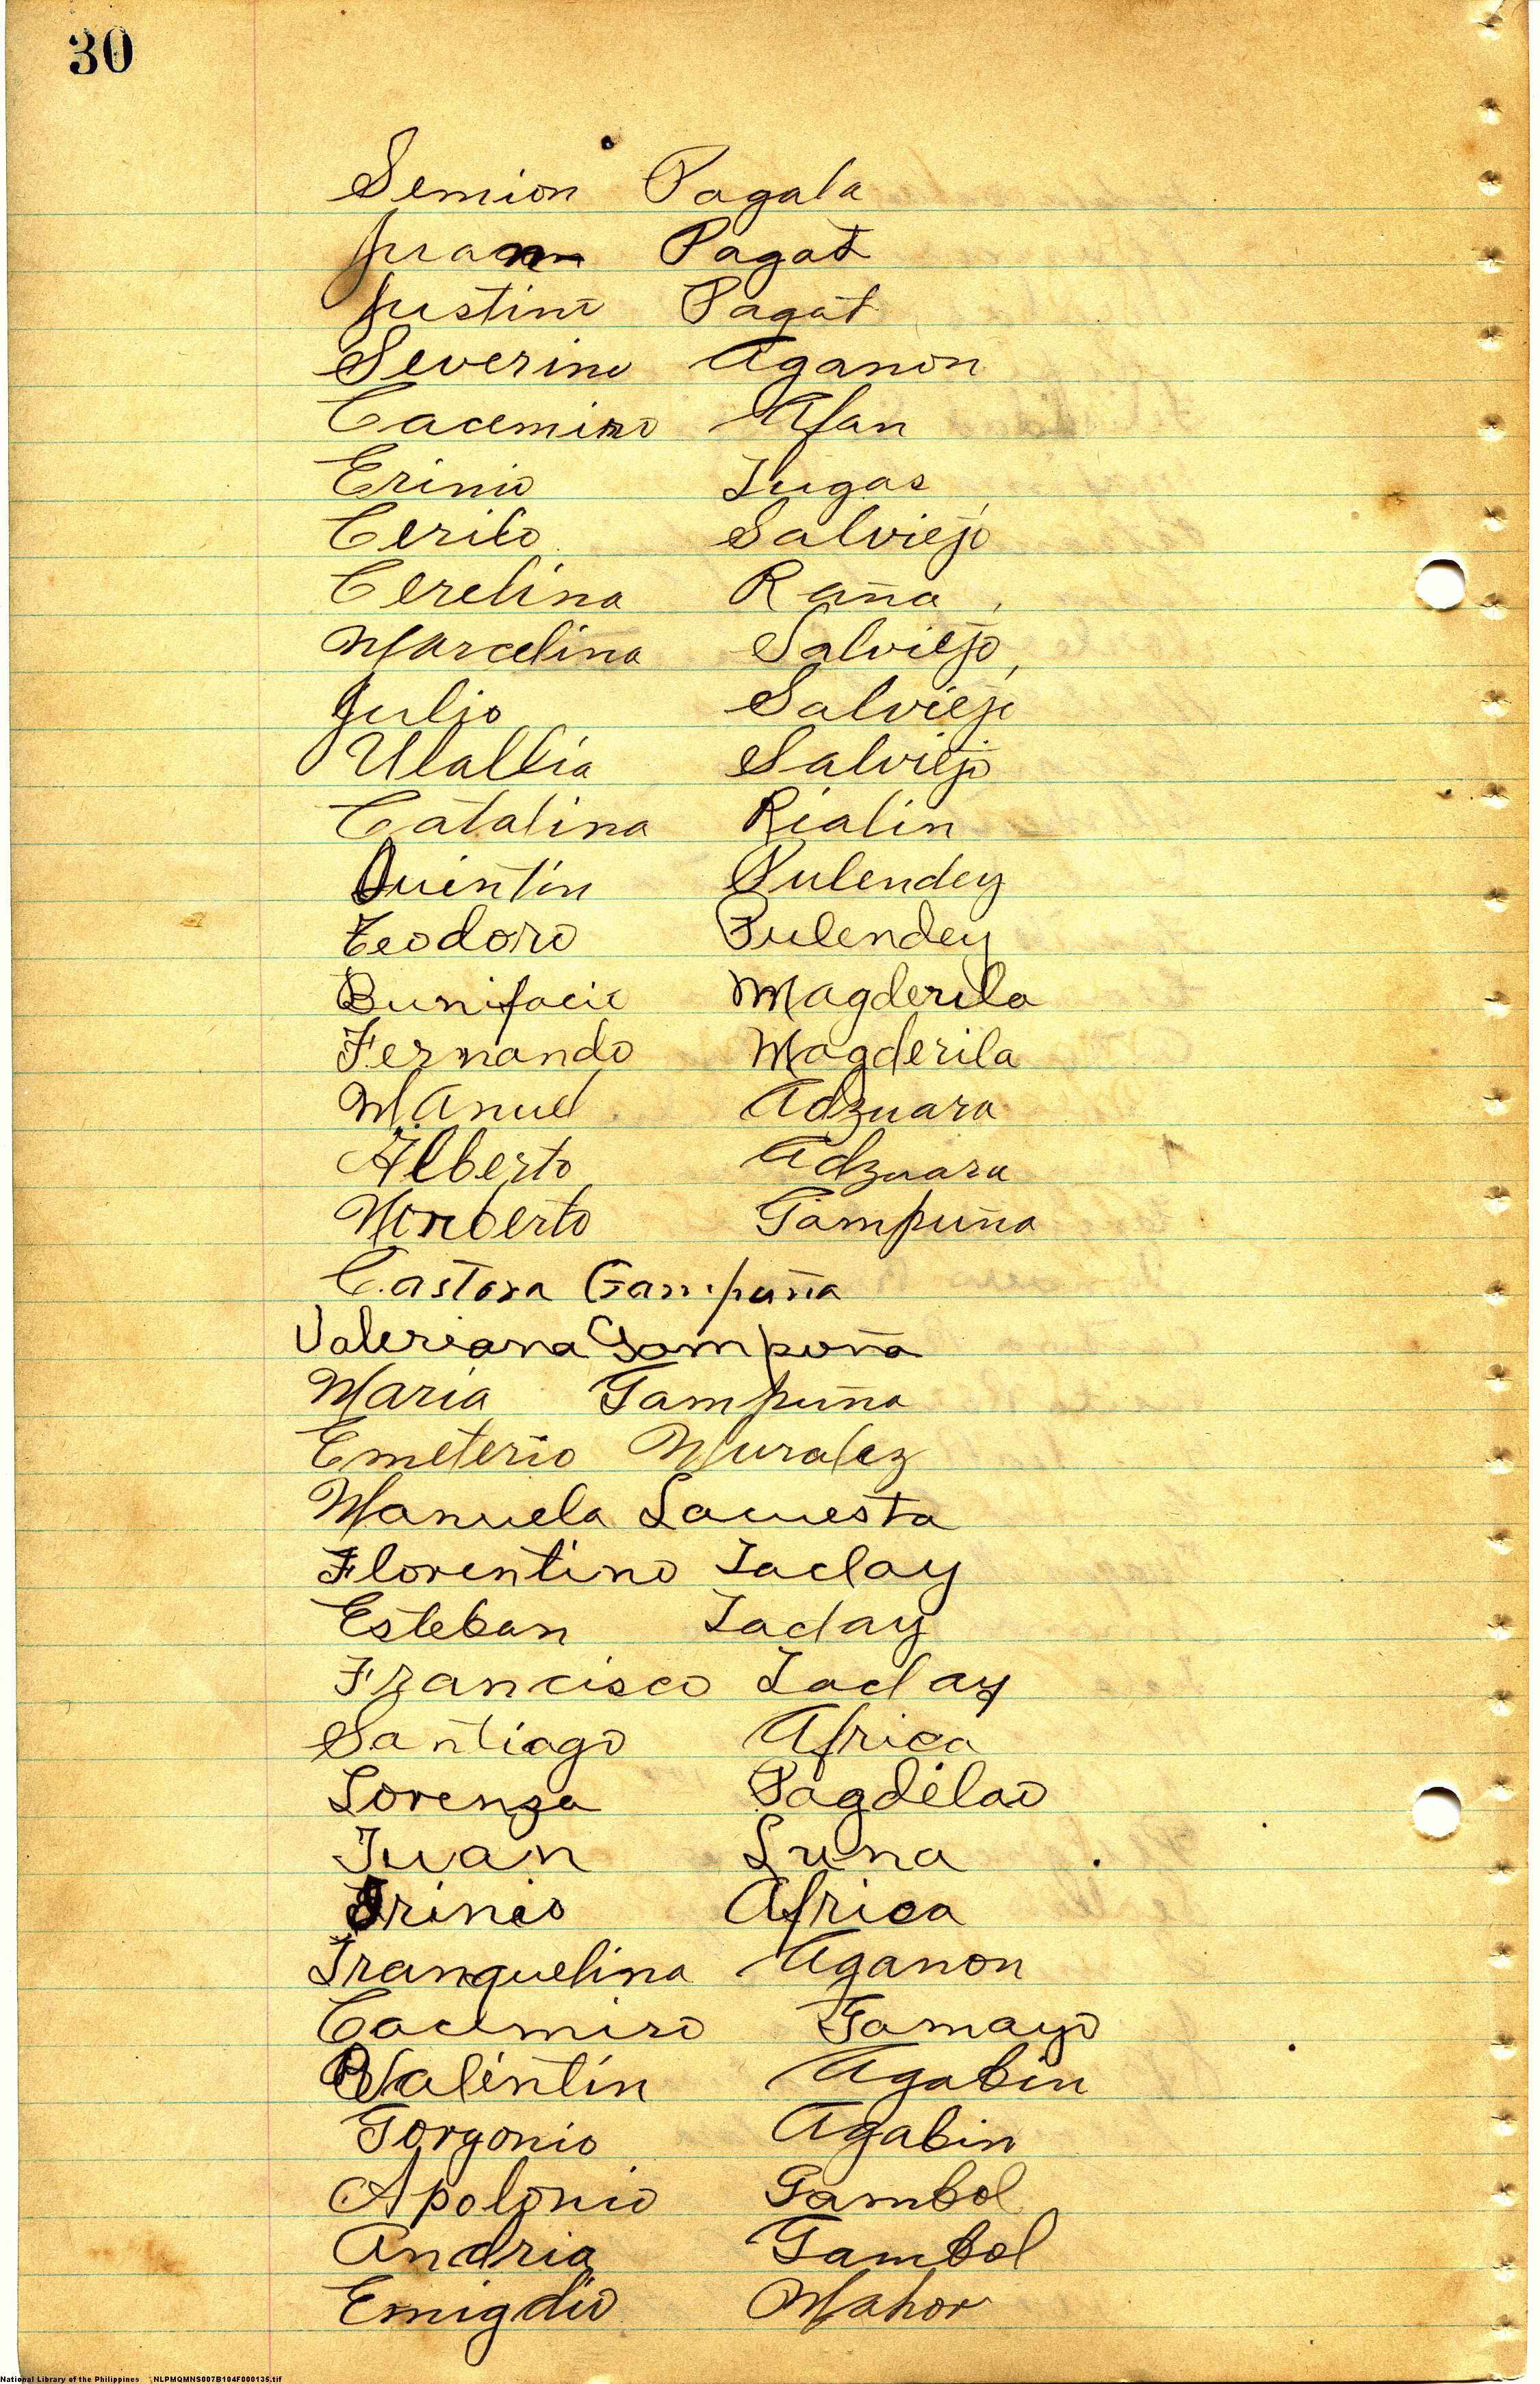 30
Semion Pagala
Juan Pagat
Justino Pagat
Severino Aganon
Cacemiro Afan
Erinio Lugas
Cerilo Salviejo
Cerelina Raña
Marcelina Salviejo
Julio Salviejo
Ulallia Salviejo
Catalina Rialin
Quintin Pulendey
Teodoro Pulendey
Bunifacio Magderila
Fernando Magderila
Manuel Adzuara
Alberto Adzuara
Norberto Gampuña
Castora Gampuña
Valeriana Gampoña
Maria Gampuña
Emeterio Muralez
Manuela Lacuesta
Florentino Laclay
Esteban Laclay
Francisco Laclay
Santiago Africa
Lorenza Pagdilao
Juan Luna
Irineo Africa
Tranquelina Aganon
Cacemiro Gamayo
Valintin Agabin
Gorgonio Agabin
Apolonio Gambol
Andria Gambol
Emigdio Mahor
National Library of the Philippines NLPMQMNS007B104F000135.tif